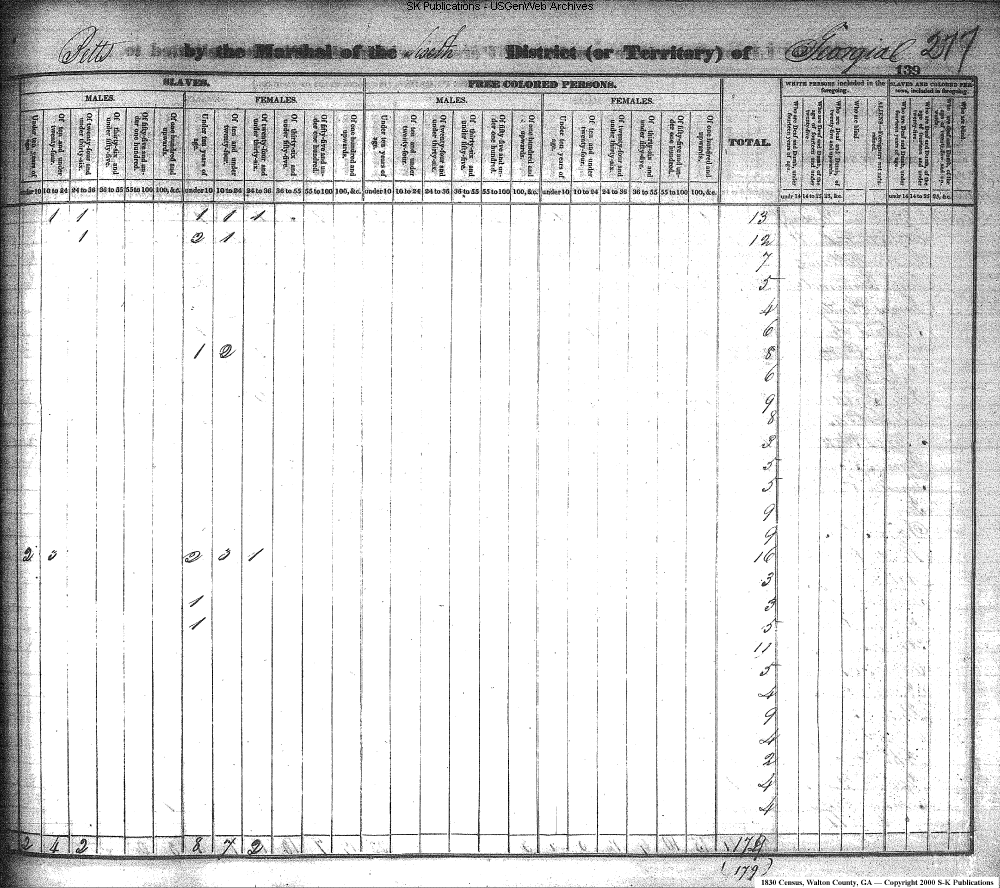 SK Publications - USGenWeb Archives
Pitts by the Marshal of the District (or Territory) of Georgia 277
139
SLAVES. FREE COLORED PERSONS. WHITE PERSONS included in the foregoing. SLAVES AND COLORED PERSONS, included in the foregoing
MALES. FEMALES. MALES. FEMALES.
Under ten years of age. Of ten and under twenty-four. Of twenty-four and under thirty-six. Of thirty-six and under fifty-five. Of fifty-five and under one hundred. Of one hundred and upwards. Under ten years of age. Of ten and under twenty-four. Of twenty-four and under thirty-six. Of thirty-six and under fifty-five. Of fifty-five and under one hundred. Of one hundred and upwards. Under ten years of age. Of ten and under twenty-four. Of twenty-four and under thirty-six. Of thirty-six and under fifty-five. Of fifty-five and under one hundred. Of one hundred and upwards. Under ten years of age. Of ten and under twenty-four. Of twenty-four and under thirty-six. Of thirty-six and under fifty-five. Of fifty-five and under one hundred. Of one hundred and upwards. TOTAL.
under 10 10 to 24 24 to 36 36 to 55 55 to 100 100, &c. under 10 10 to 24 24 to 36 36 to 55 55 to 100 100, &c. under 10 10 to 24 24 to 36 36 to 55 55 to 100 100, &c. under 10 10 to 24 24 to 36 36 to 55 55 to 100 100, &c. undr 14 14 to 25 25, &c. undr 14 14 to 25 25, &c.
1 1 1 1 1 13
1 2 1 12
7
5
4
6
1 2 8
6
9
8
2
5
5
9
9
2 3 2 3 1 16
3
1 3
1 5
11
5
4
9
4
2
4
4
2 4 2 8 7 2 179
(179)
1830 Census, Walton County, GA — Copyright 2000 S-K Publications